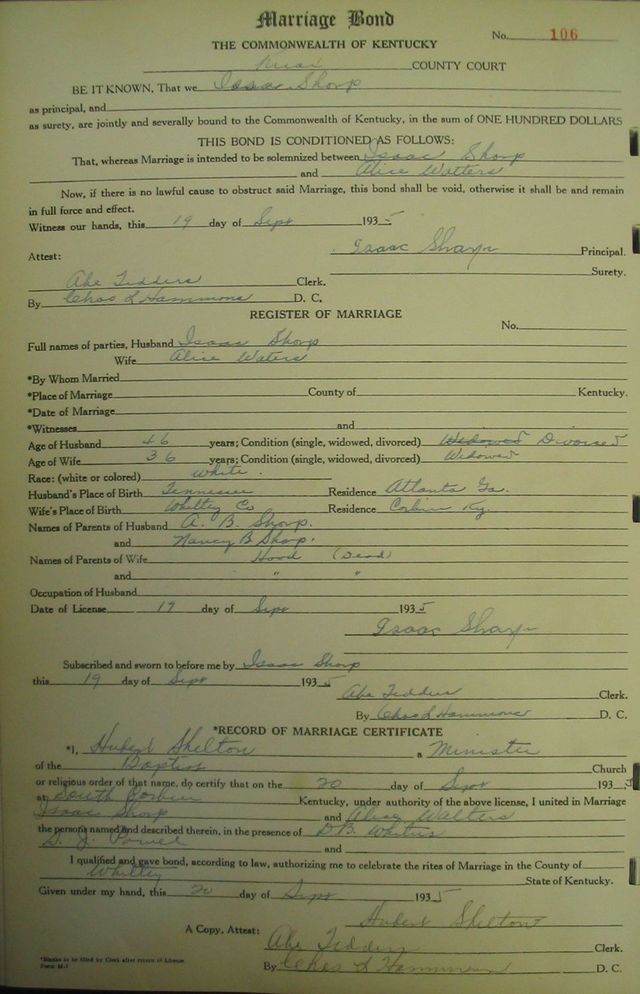 Marriage Bond
No. 106
THE COMMONWEALTH OF KENTUCKY
Knox COUNTY COURT
BE IT KNOWN, That we Isaac Sharp
as principal, and
as surety, are jointly and severally bound to the Commonwealth of Kentucky, in the sum of ONE HUNDRED DOLLARS
THIS BOND IS CONDITIONED AS FOLLOWS:
That, whereas Marriage is intended to be solemnized between Isaac Sharp
and Alice Watters
Now, if there is no lawful cause to obstruct said Marriage, this bond shall be void, otherwise it shall be and remain
in full force and effect.
Witness our hands, this 19 day of Sept 1935
Isaac Sharp Principal.
Attest: Surety.
Abe Tedders Clerk.
By Chas L Hammons D. C.
REGISTER OF MARRIAGE
No.
Full names of parties, Husband Isaac Sharp
Wife Alice Waters
*By Whom Married
*Place of Marriage County of Kentucky.
*Date of Marriage
*Witnesses and
Age of Husband 46 years; Condition (single, widowed, divorced) Widowed Divorced
Age of Wife 36 years; Condition (single, widowed, divorced) Widowed
Race: (white or colored) white
Husband's Place of Birth Tennessee Residence Atlanta Ga.
Wife's Place of Birth Whitley Co Residence Corbin Ky.
Names of Parents of Husband A. B. Sharp.
and Nancy B Sharp.
Names of Parents of Wife Hood (Dead)
and " "
Occupation of Husband
Date of License 19 day of Sept 1935
Isaac Sharp
Subscribed and sworn to before me by Isaac Sharp
this 19 day of Sept 1935
Abe Tedders Clerk.
By Chas L Hammons D. C.
*RECORD OF MARRIAGE CERTIFICATE
*I, Hubert Shelton a Minister
of the Baptist Church
or religious order of that name, do certify that on the 20 day of Sept 1935
at South Corbin Kentucky, under authority of the above license, I united in Marriage
Isaac Sharp and Alice Walters
the persons named and described therein, in the presence of D.B.
and
I qualified and gave bond, according to law, authorizing me to celebrate the rites of Marriage in the County of
Whitley State of Kentucky.
Given under my hand, this 20 day of Sept 1935
Hubert Shelton
A Copy, Attest: Abe Tedders Clerk.
By Chas L Hammons D. C.
*Blanks to be filled by Clerk after return of License.
Form M-7